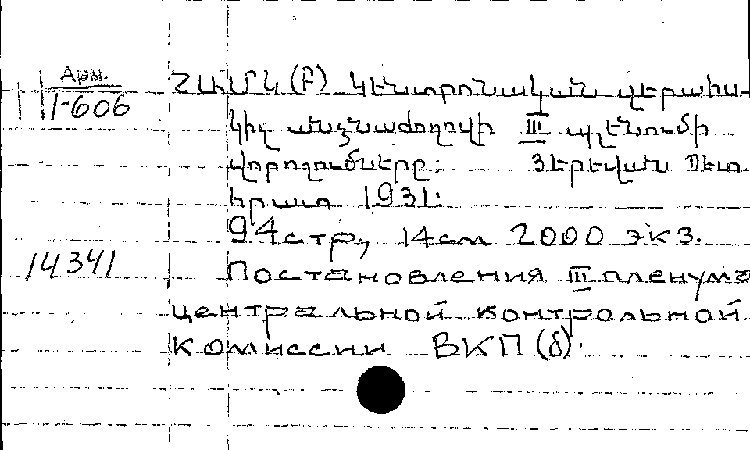 Арм.
1-606
ՀԱՄԿ(Բ) Կենտրոնական վերահս-
կիչ հանձնաժողովի III պլենումի
վորոշումները: Յերեվան Պետ
հրատ 1931:
94 стр, 14 см 2000 экз.
14341
Постановления III пленума
центральной контрольной
комиссии ВКП(б).